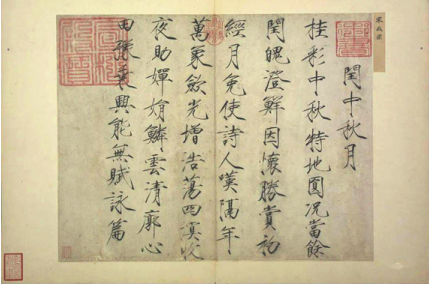 宋徽宗
閏中秋月
桂彩中秋特地圓況當餘
閏魄澄鮮因懷勝賞初
經月免使詩人嘆隔年
萬象歛光增浩蕩四溟收
夜助嬋娟鱗雲清廓心
田豫乘興能無賦詠篇